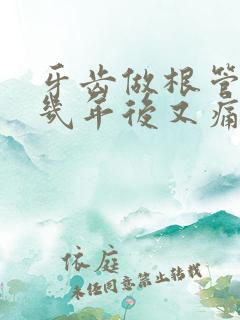 牙齿做根管
几年后又痛
依庭
未经同意禁止转载